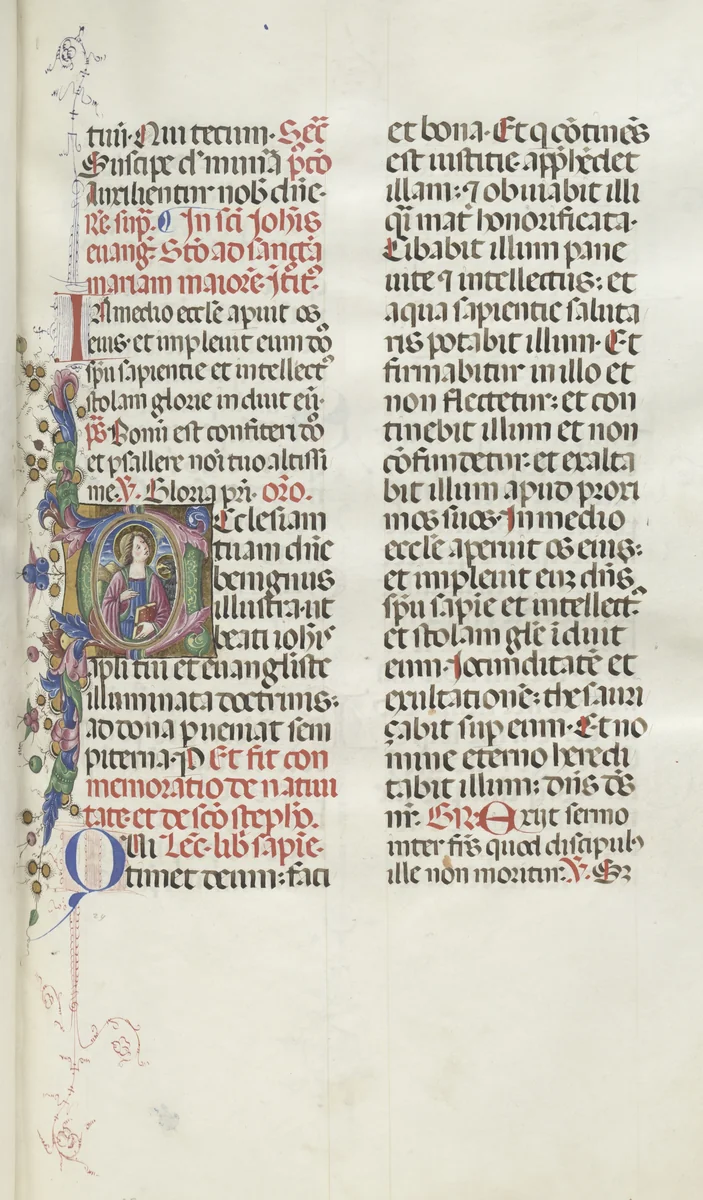 tuũ. Qui tecum. Secr̃
Suscipe dñe munera p̃co
Auxilientur nob̃ dñe.
Re. sup̃. In sc̃i Johĩs
euang̃. Stõ ad sanctã
mariam maiorẽ. Itit᷑.
In medio eccl̃e apuit os
eius. et impleuit eum dõ
sp̃u sapientie et intellect᷑
stolam glorie induit eũ.
p̃s Bonũ est confiteri dõ
et psallere noĩ tuo altissi
me. V. Gloria pr̃i. orõ.
Ecclesiam
tuam dñe
benignus
illustra. ut
beati iohĩs
apl̃i tui et euangliste
illuminata doctrinis:
ad dona pueniat sem
piterna. P Et fit con
memoratio de natiui
tate et de scõ stephõ.
Lec̃. lib̃ sapĩe.
Qui timet deum: faci
et bona. Et q cõtinẽs
est iustitie apph̃edet
illam: ⁊ obuiabit illi
q̃i mat̃ honorificata.
Cibabit illum pane
uite ⁊ intellectus: et
aqua sapientie saluta
ris potabit illum. Et
firmabitur in illo et
non flectetur: et con
tinebit illum et non
cõfundetur. et exalta
bit illum apud proxi
mos suos. In medio
eccl̃e aperuit os eius:
et impleuit euz dñs
sp̃u sapĩe et intellect᷑.
et stolam gl̃e ĩduit
eum. Iocunditatẽ et
exultationẽ: thesauri
çabit sup eum. Et no
mine eterno heredi
tabit illum: dñs dẽs
nr̃. GR. Exijt sermo
inter frẽs quod discipulus
ille non moritur. V. S3
29